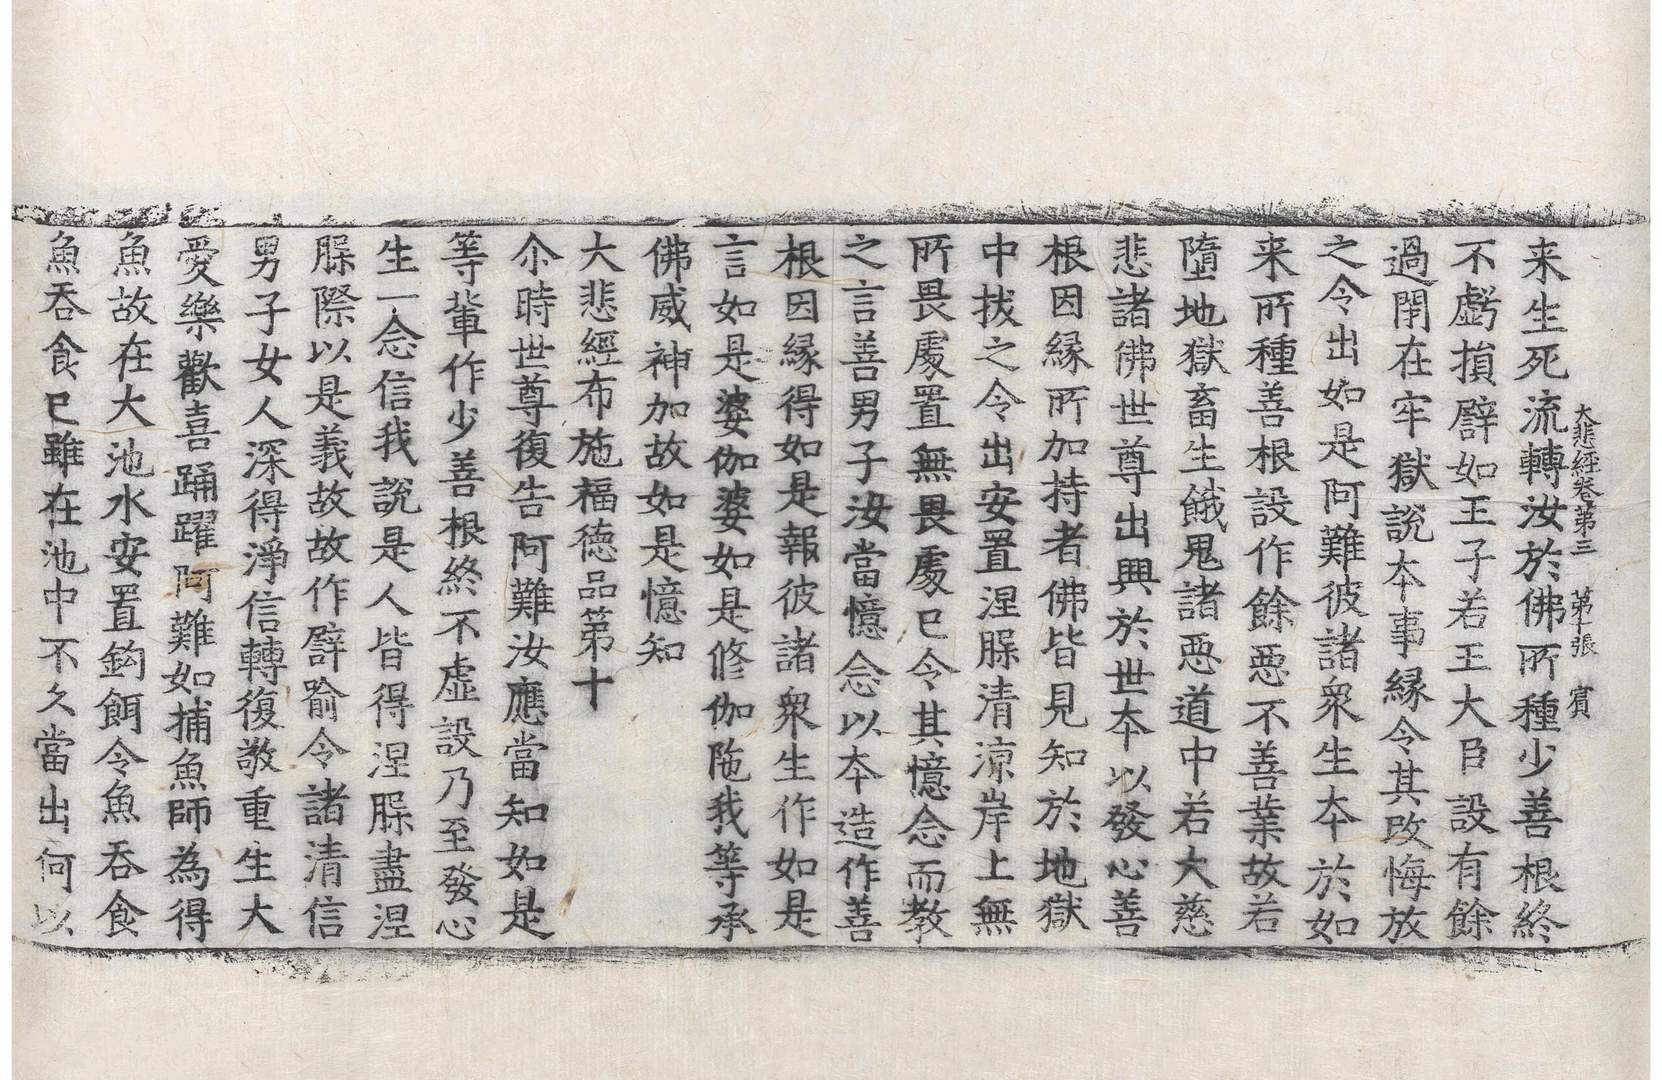 大悲經卷第三　第十張　賓
来生死流轉汝於佛所種少善根終
不虧損譬如王子若王大臣設有餘
過閇在牢獄說本事縁令其改悔放
之令出如是阿難彼諸衆生本於如
来所種善根設作餘惡不善業故若
墮地獄畜生餓鬼諸惡道中若大慈
悲諸佛世尊出興於世本以發心善
根因縁所加持者佛皆見知於地獄
中拔之令出安置涅槃清涼岸上無
所畏處置無畏處已令其憶念而教
之言善男子汝當憶念以本造作善
根因縁得如是報彼諸衆生作如是
言如是婆伽婆如是修伽陁我等承
佛威神加故如是憶知
大悲經布施福德品第十
尒時世尊復告阿難汝應當知如是
等輩作少善根終不虛設乃至發心
生一念信我說是人皆得涅槃盡涅
槃際以是義故故作譬喻令諸清信
男子女人深得淨信轉復敬重生大
愛樂歡喜踊躍阿難如捕魚師為得
魚故在大池水安置鈎餌令魚吞食
魚吞食已雖在池中不久當出何以